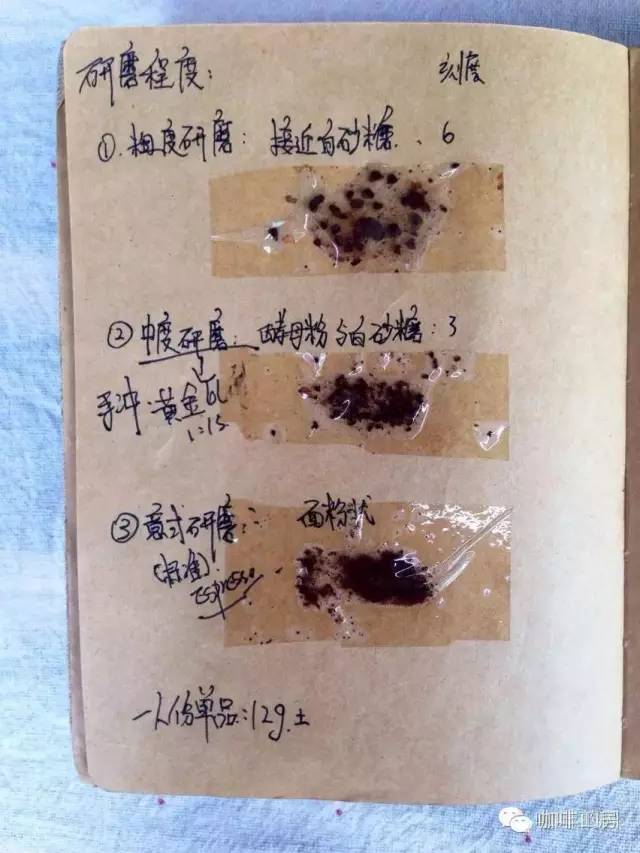 研磨程度: 刻度
①.粗度研磨: 接近白砂糖. 6
②中度研磨: 酵母粉与白砂糖: 3
手冲:黄金比
1:15
③意式研磨: 面粉状
(标准).
Espresso
一人份单品:12g.±
咖啡的周